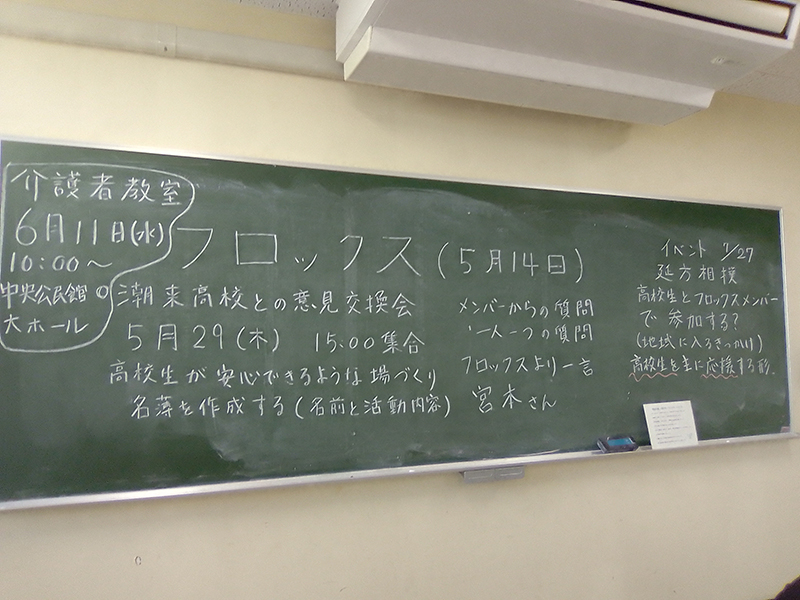 介護者教室
6月11日(水)
10:00〜
中央公民館
大ホール
フロックス(5月14日)
○潮来高校との意見交換会
5月29(木) 15:00集合
高校生が安心できるような場づくり
名簿を作成する(名前と活動内容)
メンバーからの質問
一人一つの質問
フロックスより一言
宮本さん
イベント 7/27
延方相撲
高校生とフロックスメンバー
で参加する?
(地域に入るきっかけ)
高校生を主に応援する形.